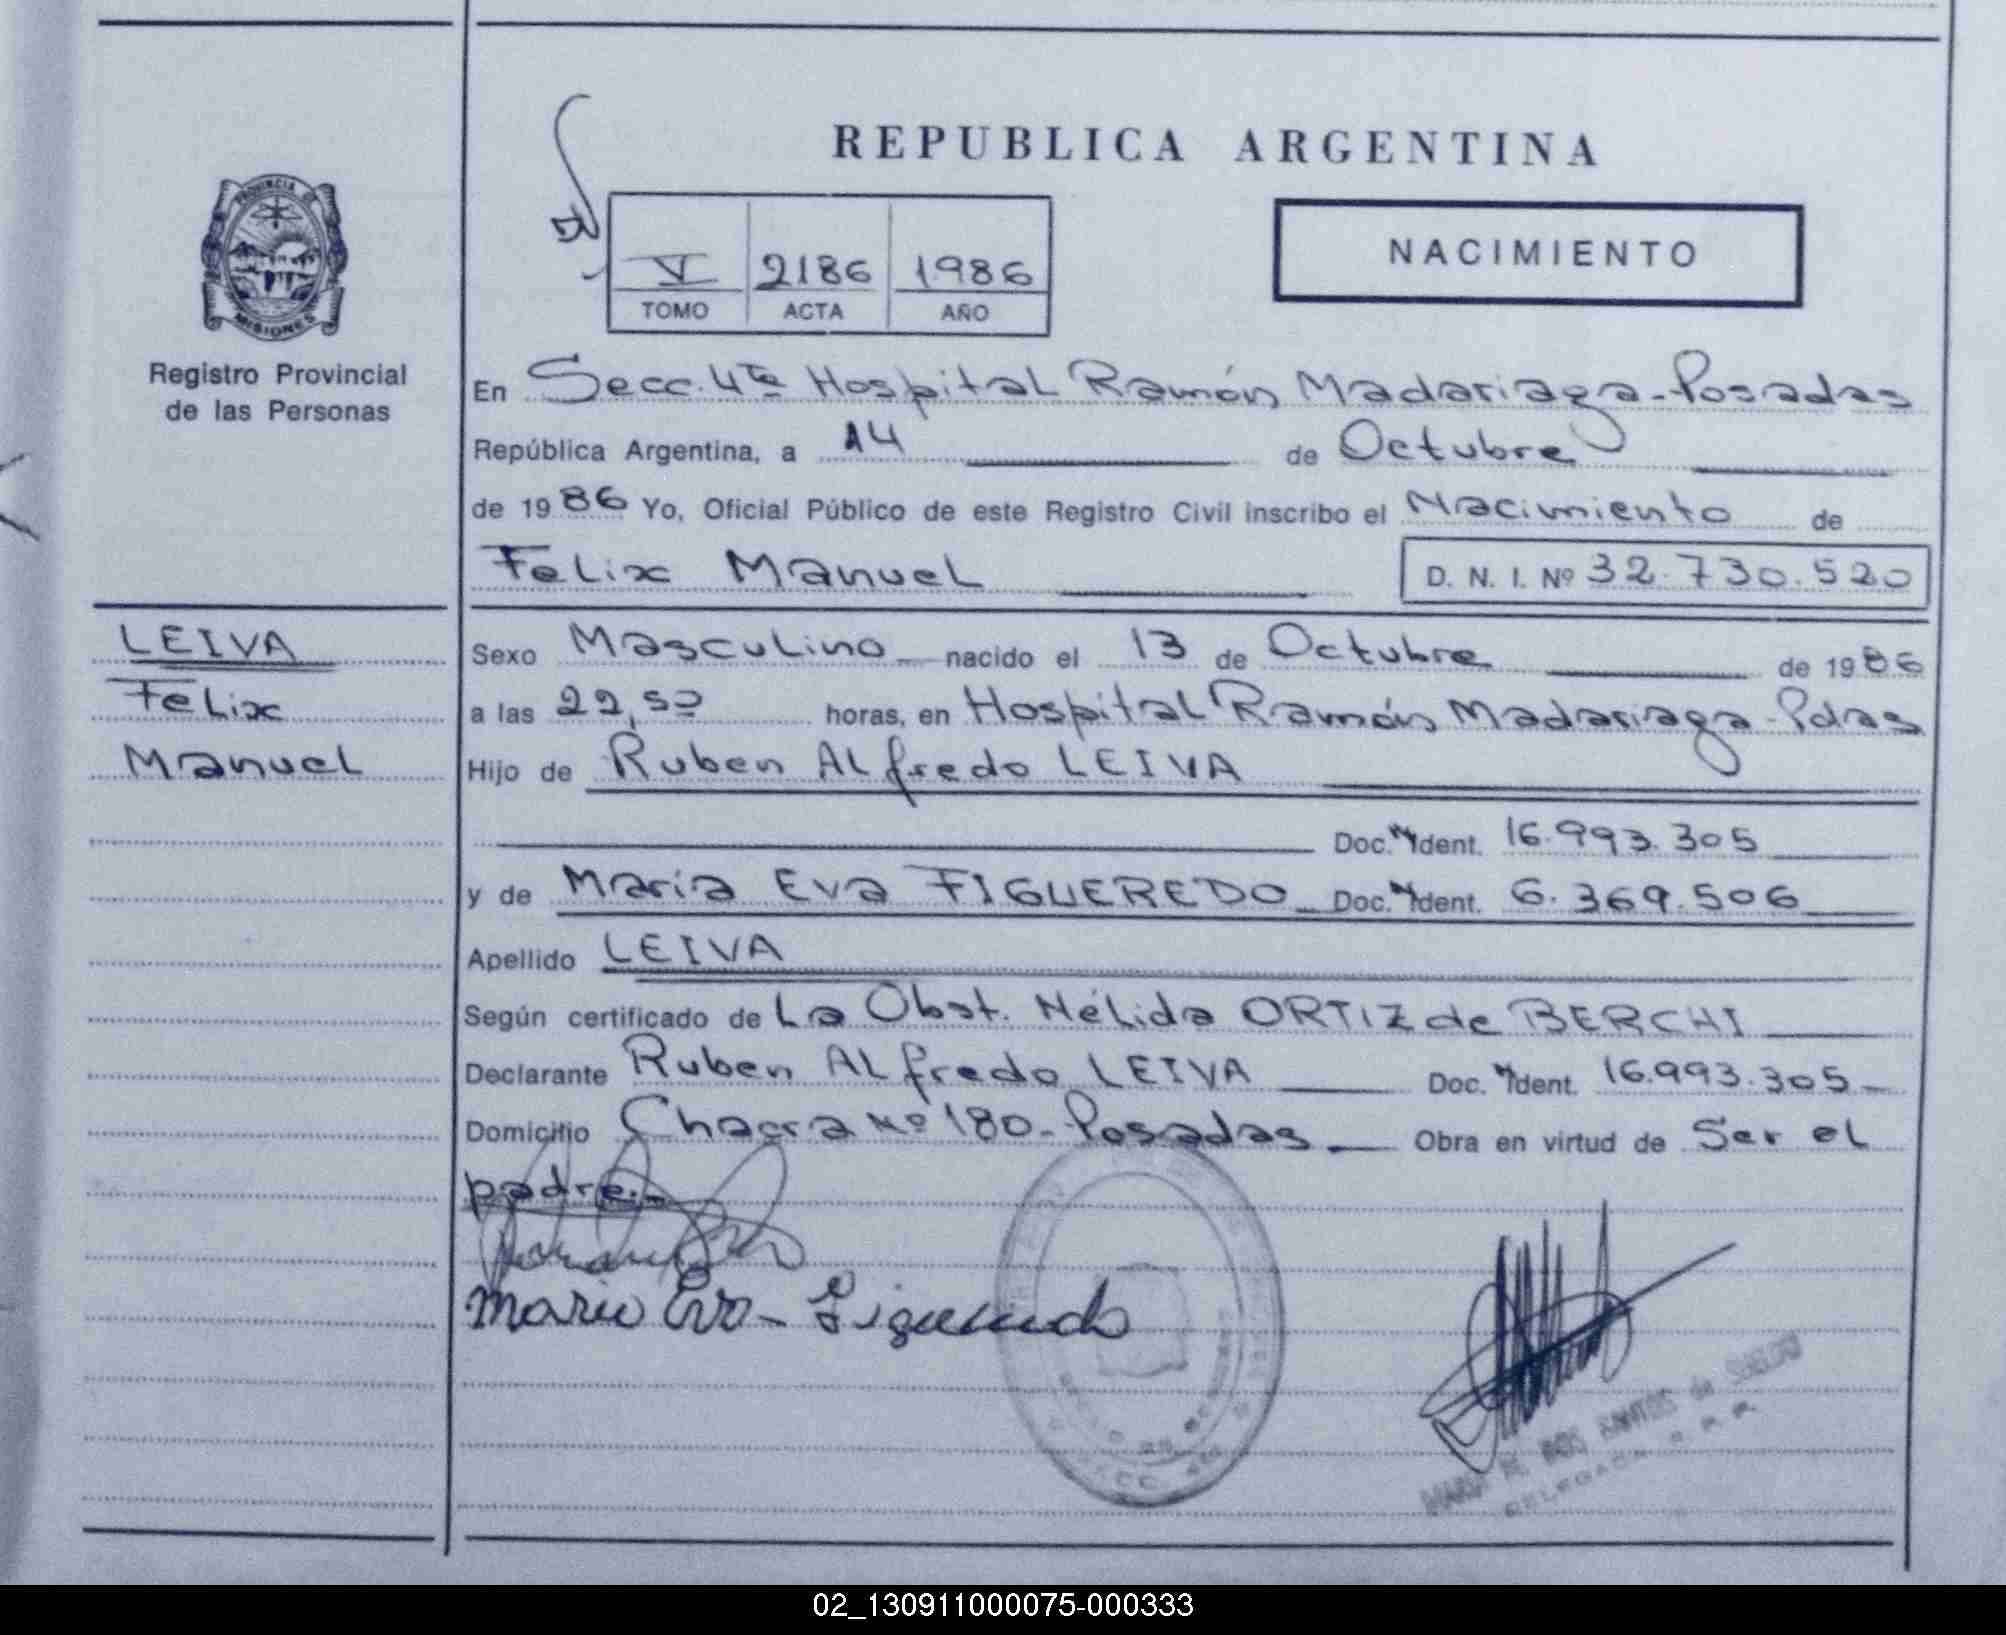 REPUBLICA ARGENTINA
NACIMIENTO
V 2186 1986
TOMO ACTA AÑO
PROVINCIA DE
MISIONES
Registro Provincial
de las Personas
En Secc. 4ta Hospital Ramón Madariaga - Posadas
República Argentina, a 14 de Octubre
de 1986 Yo, Oficial Público de este Registro Civil inscribo el Nacimiento de
Felix Manuel D. N. I. Nº 32.730.520
LEIVA
Felix
Manuel
Sexo Masculino nacido el 13 de Octubre de 1986
a las 22,50 horas, en Hospital Ramón Madariaga - Pdas
Hijo de Ruben Alfredo LEIVA
Doc. Ident. 16.993.305
y de Maria Eva FIGUEREDO Doc. Ident. 6.369.506
Apellido LEIVA
Según certificado de La Obst. Nélida ORTIZ de BERCHI
Declarante Ruben Alfredo LEIVA Doc. Ident. 16.993.305
Domicilio Chacra Nº 180 - Posadas Obra en virtud de Ser el
padre.-
Maria Eva - Figueredo
DOS SANTOS de
02_130911000075-000333